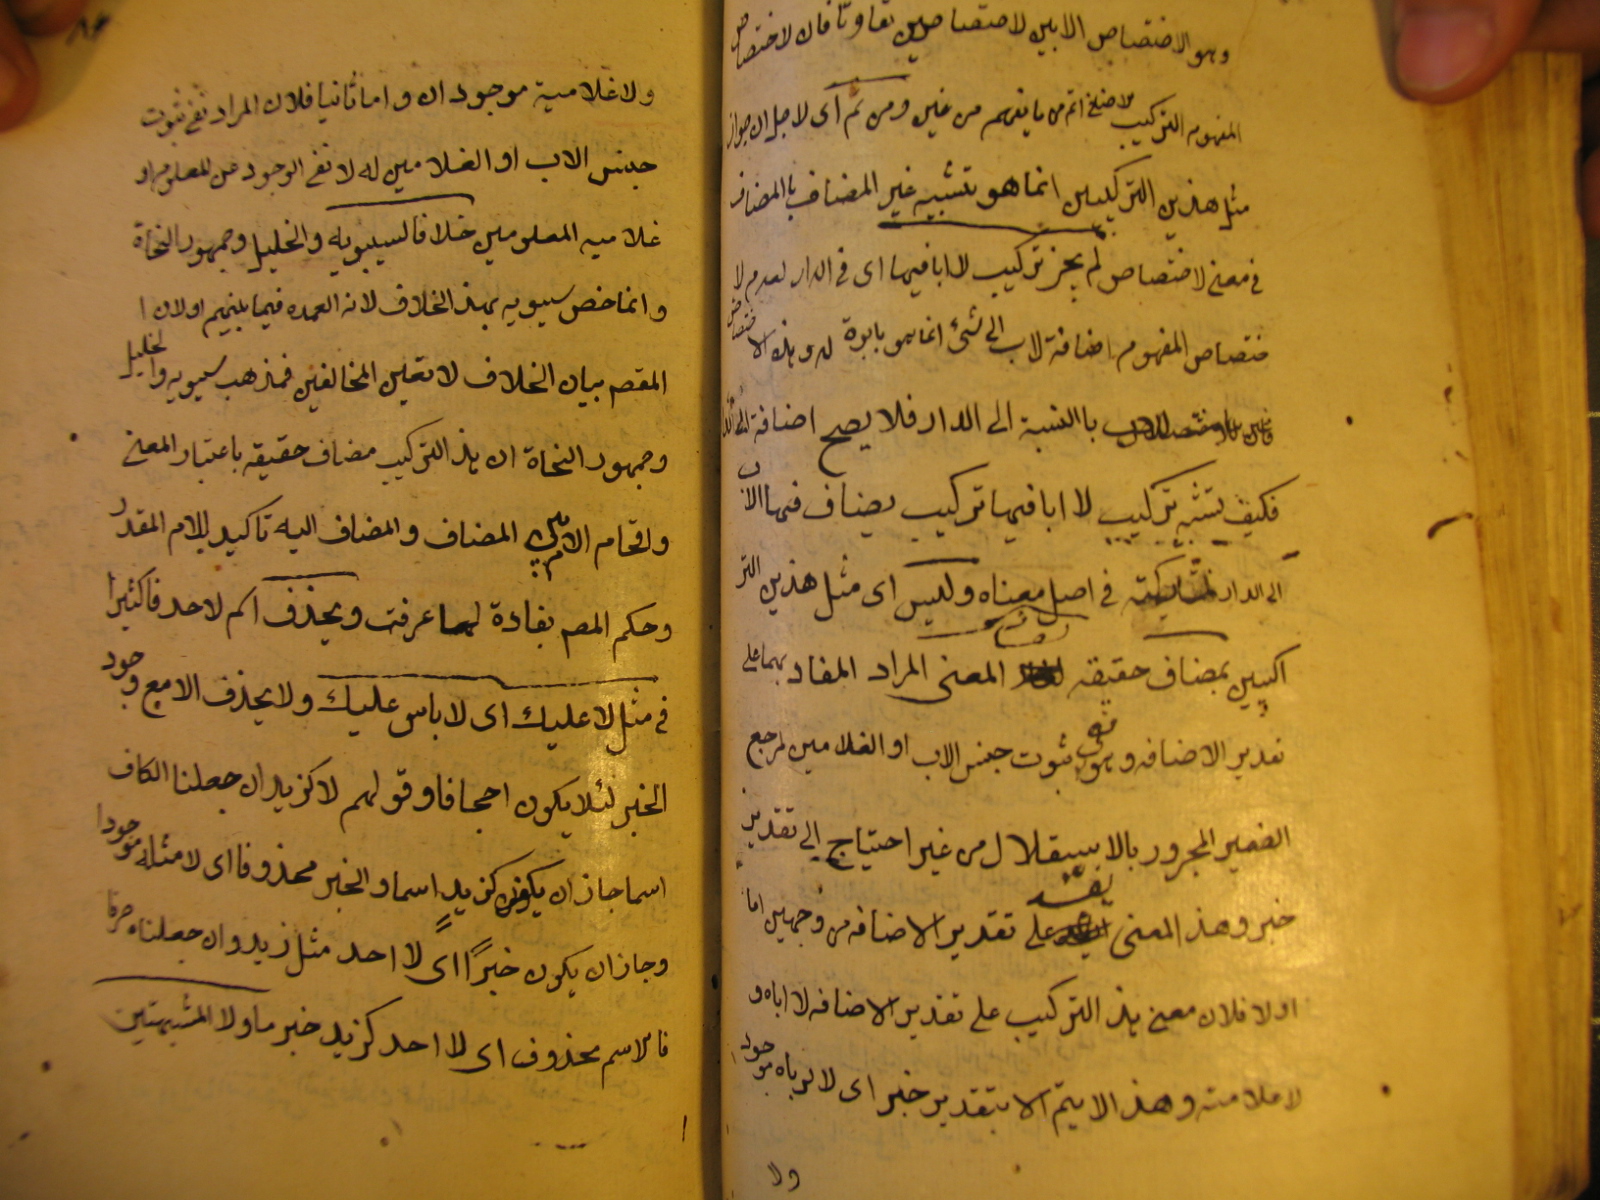 وهو الاختصاص الا بين لاختصاصين تفاوتا فان لاختصاص
المفهوم التركيب لاضافي اتم من ما يفهم من غير ومن ثم اى لاجل ان جواز
مثل هذين التركيبين انما هو تشبيه غير المضاف باالمضاف
فى معنى لاختصاص لم يجز تركيب لا ابا فيها اى فى الدار لعدم لا
ختصاص المفهوم اضافة لاب الى شئ انما هو بابوة له وهذه الاختصاص
باالنسبة الى الدار فلا يصح اضافة
فكيف تشبه تركيب لا ابا فيها تركيب يضاف فيها الاب
الى الدار لمشاركته فى اصل معناه وليس اى مثل هذين التر
كيبين بمضاف حقيقة لفساد المعنى المراد المفاد بهما على
تقدير الاضافه وهو نفى ثبوت جنس الاب او الغلامين لمرجع
الضمير المجرور بالاستقلال من غير احتياج الى تقدير
خبر وهذ المعنى يفسد على تقدير الاضافه من وجهين اما
اولا فلان معنى هذ التركيب على تقدير الاضافه لا اباه و
لا غلاميه وهذ الا يتم الا بتقدير خبر اى لا اباه موجود
ولا
ولا غلاميه موجودان واما ثانيا فلان المراد نفى ثبوت
جنس الاب او الغلامين له لا نفى الوجود عن المعلوم او
غلاميه المعلومين خلافا لسيبويه والخليل وجمهور النحاة
وانما خص سيبويه بهذ الخلاف لانه العمده فيما بينهم او لان ا
المقصم بيان الخلاف لا تعين المخالفين فمذهب سيبويه والخليل
وجمهور النحاة ان هذ التركيب مضاف حقيقه باعتبار المعنى
ولاقحام الام بين المضاف والمضاف اليه تاكيد للام المقدر
وحكم المصم بفادة لما عرفت ويحذف اسم لا حذفا كثيرا
فى مثل لا عليك اى لا باس عليك ولا يحذف الا مع وجود
الخبر لئلا يكون احجافا وقولهم لا كزيد ان جعلنا الكاف
اسما جاز ان يكون كزيد اسما والخبر محذوفا اى لا مثله موجودا
وجاز ان يكون خبرًا اى لا احد مثل زيد وان جعلناه حرفا
فالاسم محذوف اى لا احد كزيد خبر ما ولا المشبهتين